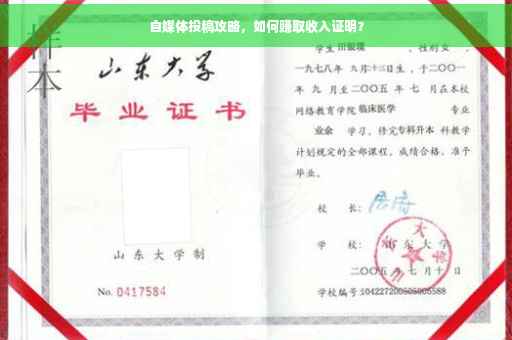 自媒体投稿攻略，如何赚取收入证明？
样本
山东大学
毕业证书
山东大学制
No. 0417584
学生 田银瑞 ，性别 女 ，
一九七八年 九月十二日生，于二〇〇一
年 九 月至二〇〇五 年 七 月在本校
网络教育学院 临床医学 专业
业余 学习，修完专科升本 科教学
计划规定的全部课程，成绩合格，准予
毕业。
校 长：
学 校： 山东大学
二〇〇五 年 七 月 十 日
学校编号:
山东大学